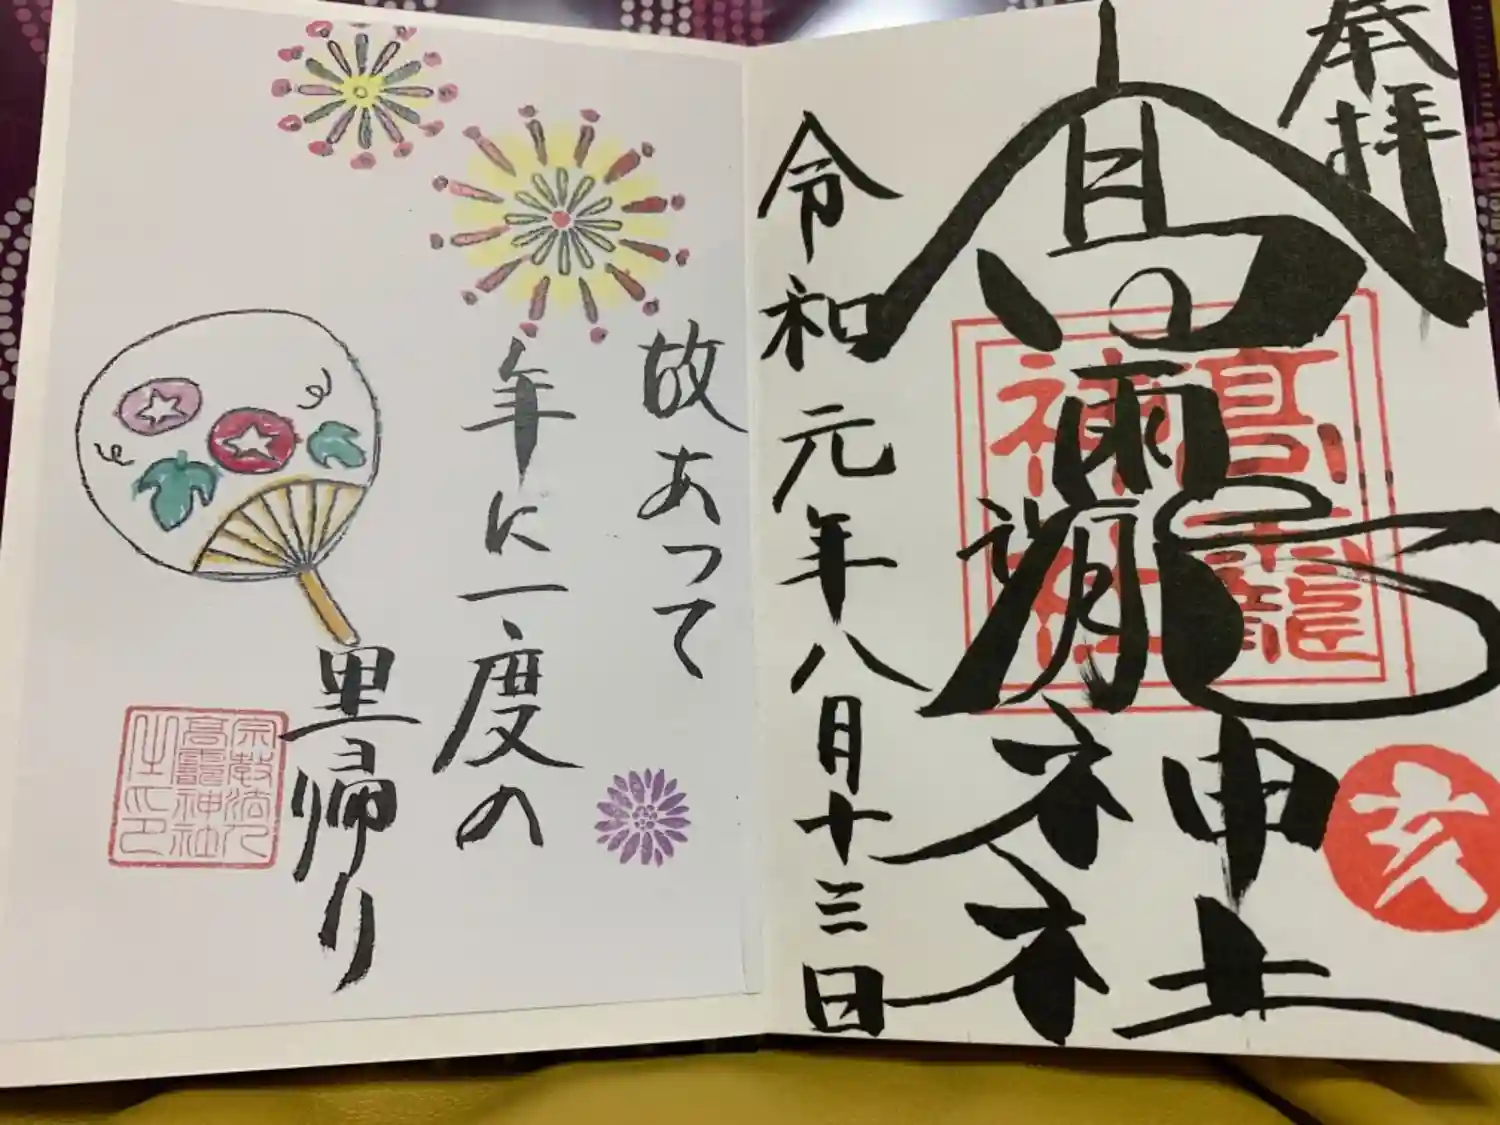 奉拝
高龗神社
高龗神社
亥
令和元年八月十三日
故あって
年に一度の
里帰り
宗教法人
高龗神社
之印